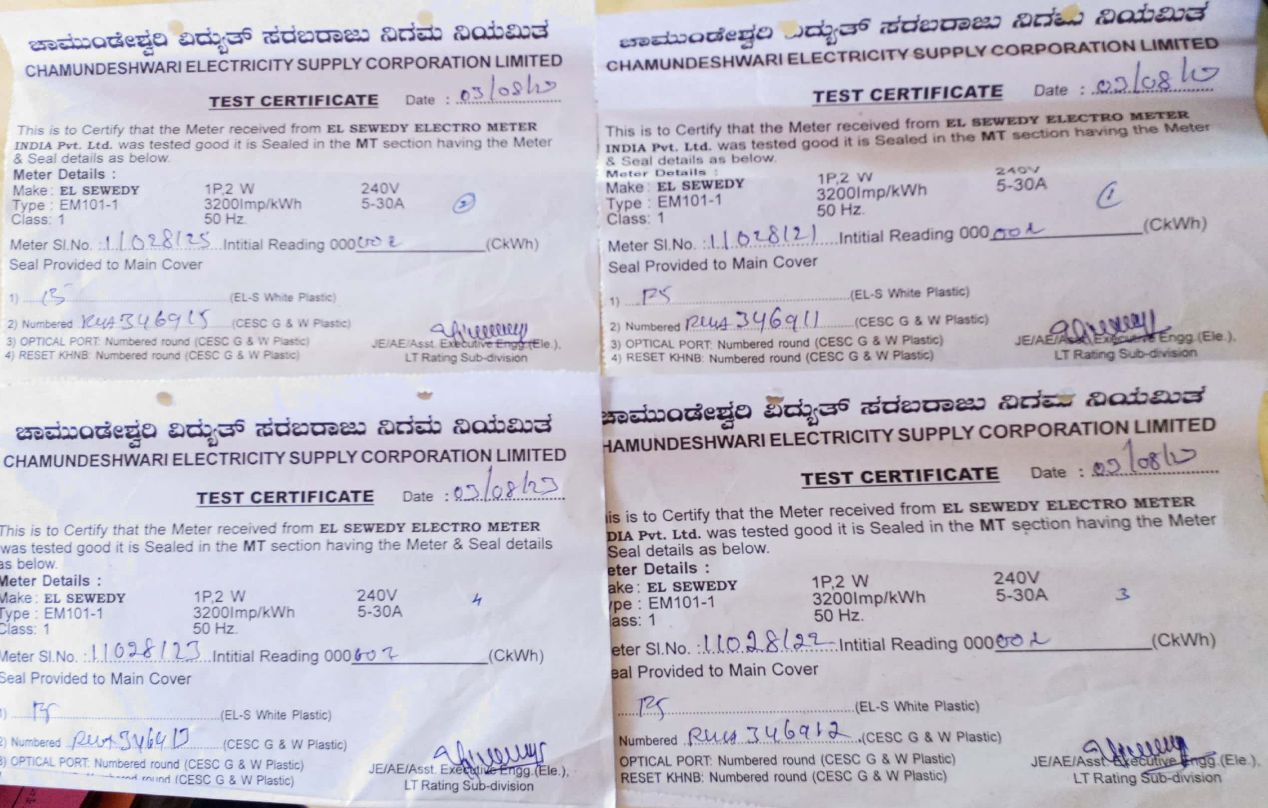 ಚಾಮುಂಡೇಶ್ವರಿ ವಿದ್ಯುತ್ ಸರಬರಾಜು ನಿಗಮ ನಿಯಮಿತ
CHAMUNDESHWARI ELECTRICITY SUPPLY CORPORATION LIMITED
TEST CERTIFICATE Date : 03/08/
This is to Certify that the Meter received from EL SEWEDY ELECTRO METER
INDIA Pvt. Ltd. was tested good it is Sealed in the MT section having the Meter
& Seal details as below.
Meter Details :
Make : EL SEWEDY 1P,2 W 240V
Type : EM101-1 3200Imp/kWh 5-30A 2
Class: 1 50 Hz.
Meter Sl.No. : 11028125 Intitial Reading 000002 (CkWh)
Seal Provided to Main Cover
1) (EL-S White Plastic)
2) Numbered 346915 (CESC G & W Plastic)
3) OPTICAL PORT: Numbered round (CESC G & W Plastic) JE/AE/Asst. Executive Engg.(Ele.),
4) RESET KHNB: Numbered round (CESC G & W Plastic) LT Rating Sub-division
ಚಾಮುಂಡೇಶ್ವರಿ ವಿದ್ಯುತ್ ಸರಬರಾಜು ನಿಗಮ ನಿಯಮಿತ
CHAMUNDESHWARI ELECTRICITY SUPPLY CORPORATION LIMITED
TEST CERTIFICATE Date : 03/08/
This is to Certify that the Meter received from EL SEWEDY ELECTRO METER
INDIA Pvt. Ltd. was tested good it is Sealed in the MT section having the Meter
& Seal details as below.
Meter Details :
Make : EL SEWEDY 1P,2 W 240V
Type : EM101-1 3200Imp/kWh 5-30A 1
Class: 1 50 Hz.
Meter Sl.No. : 11028121 Intitial Reading 000002 (CkWh)
Seal Provided to Main Cover
1) (EL-S White Plastic)
2) Numbered 346911 (CESC G & W Plastic)
3) OPTICAL PORT: Numbered round (CESC G & W Plastic) JE/AE/Asst. Executive Engg.(Ele.),
4) RESET KHNB: Numbered round (CESC G & W Plastic) LT Rating Sub-division
ಚಾಮುಂಡೇಶ್ವರಿ ವಿದ್ಯುತ್ ಸರಬರಾಜು ನಿಗಮ ನಿಯಮಿತ
CHAMUNDESHWARI ELECTRICITY SUPPLY CORPORATION LIMITED
TEST CERTIFICATE Date : 03/08/23
This is to Certify that the Meter received from EL SEWEDY ELECTRO METER
was tested good it is Sealed in the MT section having the Meter & Seal details
as below.
Meter Details :
Make : EL SEWEDY 1P,2 W 240V
Type : EM101-1 3200Imp/kWh 5-30A 4
Class: 1 50 Hz.
Meter Sl.No. : 11028123 Intitial Reading 000002 (CkWh)
Seal Provided to Main Cover
1) (EL-S White Plastic)
2) Numbered (CESC G & W Plastic)
3) OPTICAL PORT: Numbered round (CESC G & W Plastic) JE/AE/Asst. Executive Engg.(Ele.),
round (CESC G & W Plastic) LT Rating Sub-division
ಚಾಮುಂಡೇಶ್ವರಿ ವಿದ್ಯುತ್ ಸರಬರಾಜು ನಿಗಮ ನಿಯಮಿತ
HAMUNDESHWARI ELECTRICITY SUPPLY CORPORATION LIMITED
TEST CERTIFICATE Date : 03/08/
is is to Certify that the Meter received from EL SEWEDY ELECTRO METER
DIA Pvt. Ltd. was tested good it is Sealed in the MT section having the Meter
Seal details as below.
eter Details :
ake : EL SEWEDY 1P,2 W 240V
pe : EM101-1 3200Imp/kWh 5-30A 3
ass: 1 50 Hz.
eter Sl.No. : 11028122 Intitial Reading 000002 (CkWh)
eal Provided to Main Cover
(EL-S White Plastic)
Numbered 346912 (CESC G & W Plastic)
OPTICAL PORT: Numbered round (CESC G & W Plastic) JE/AE/Asst. Executive Engg.(Ele.),
RESET KHNB: Numbered round (CESC G & W Plastic) LT Rating Sub-division